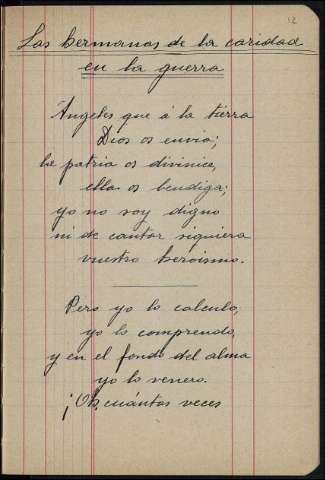 12
Las hermanas de la caridad
en la guerra
Ángeles que á la tierra
Dios os envia;
la patria os divinice,
ella os bendiga;
yo no soy digno
ni de cantar siquiera
vuestro heroismo.
Pero yo lo calculo,
yo lo comprendo,
y en el fondo del alma
yo lo venero.
¡Oh, cuántas veces